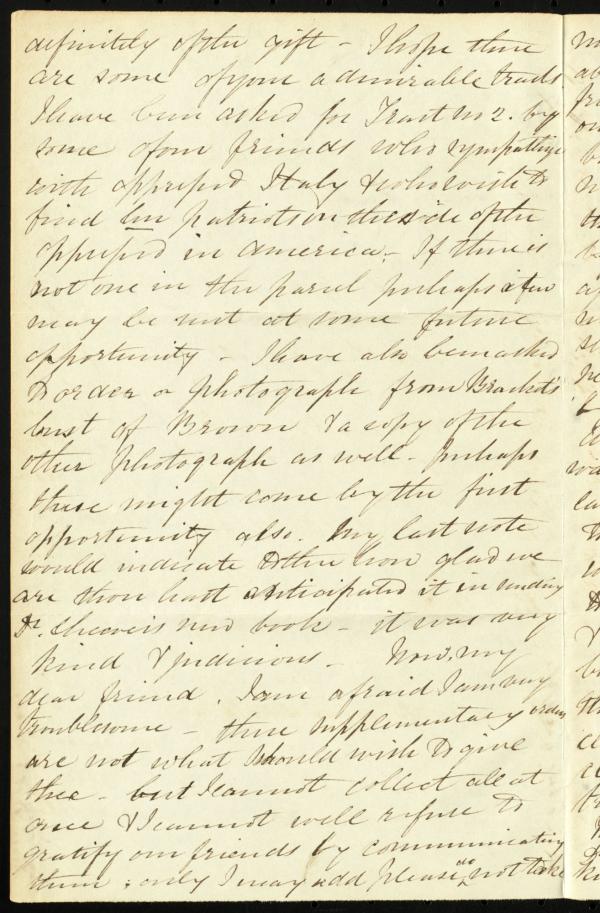 definitely of the gift - I hope there
are some of your admirable tracts.
I have been asked for Tract no 2. by
some of our friends who sympathize
with oppressed Italy & who wish to
find her patriots on the side of the
oppressed in America. - If there is
not one in the parcel perhaps a few
may be sent at some future
opportunity - I have also been asked
to order a photograph from Brackett's
bust of Brown & a copy of the
other photograph as well - Perhaps
these might come by the first
opportunity also. My last note
would indicate to thee how glad we
are thou hast anticipated it in sending
Dr. Cheever's new book - it was very
kind & judicious - Now, my
dear friend, I am afraid I am very
troublesome - these supplementary orders
are not what I should wish to give
thee - but I cannot collect all at
once & I cannot well refuse to
gratify our friends by communicating
them; only I may add please do not take